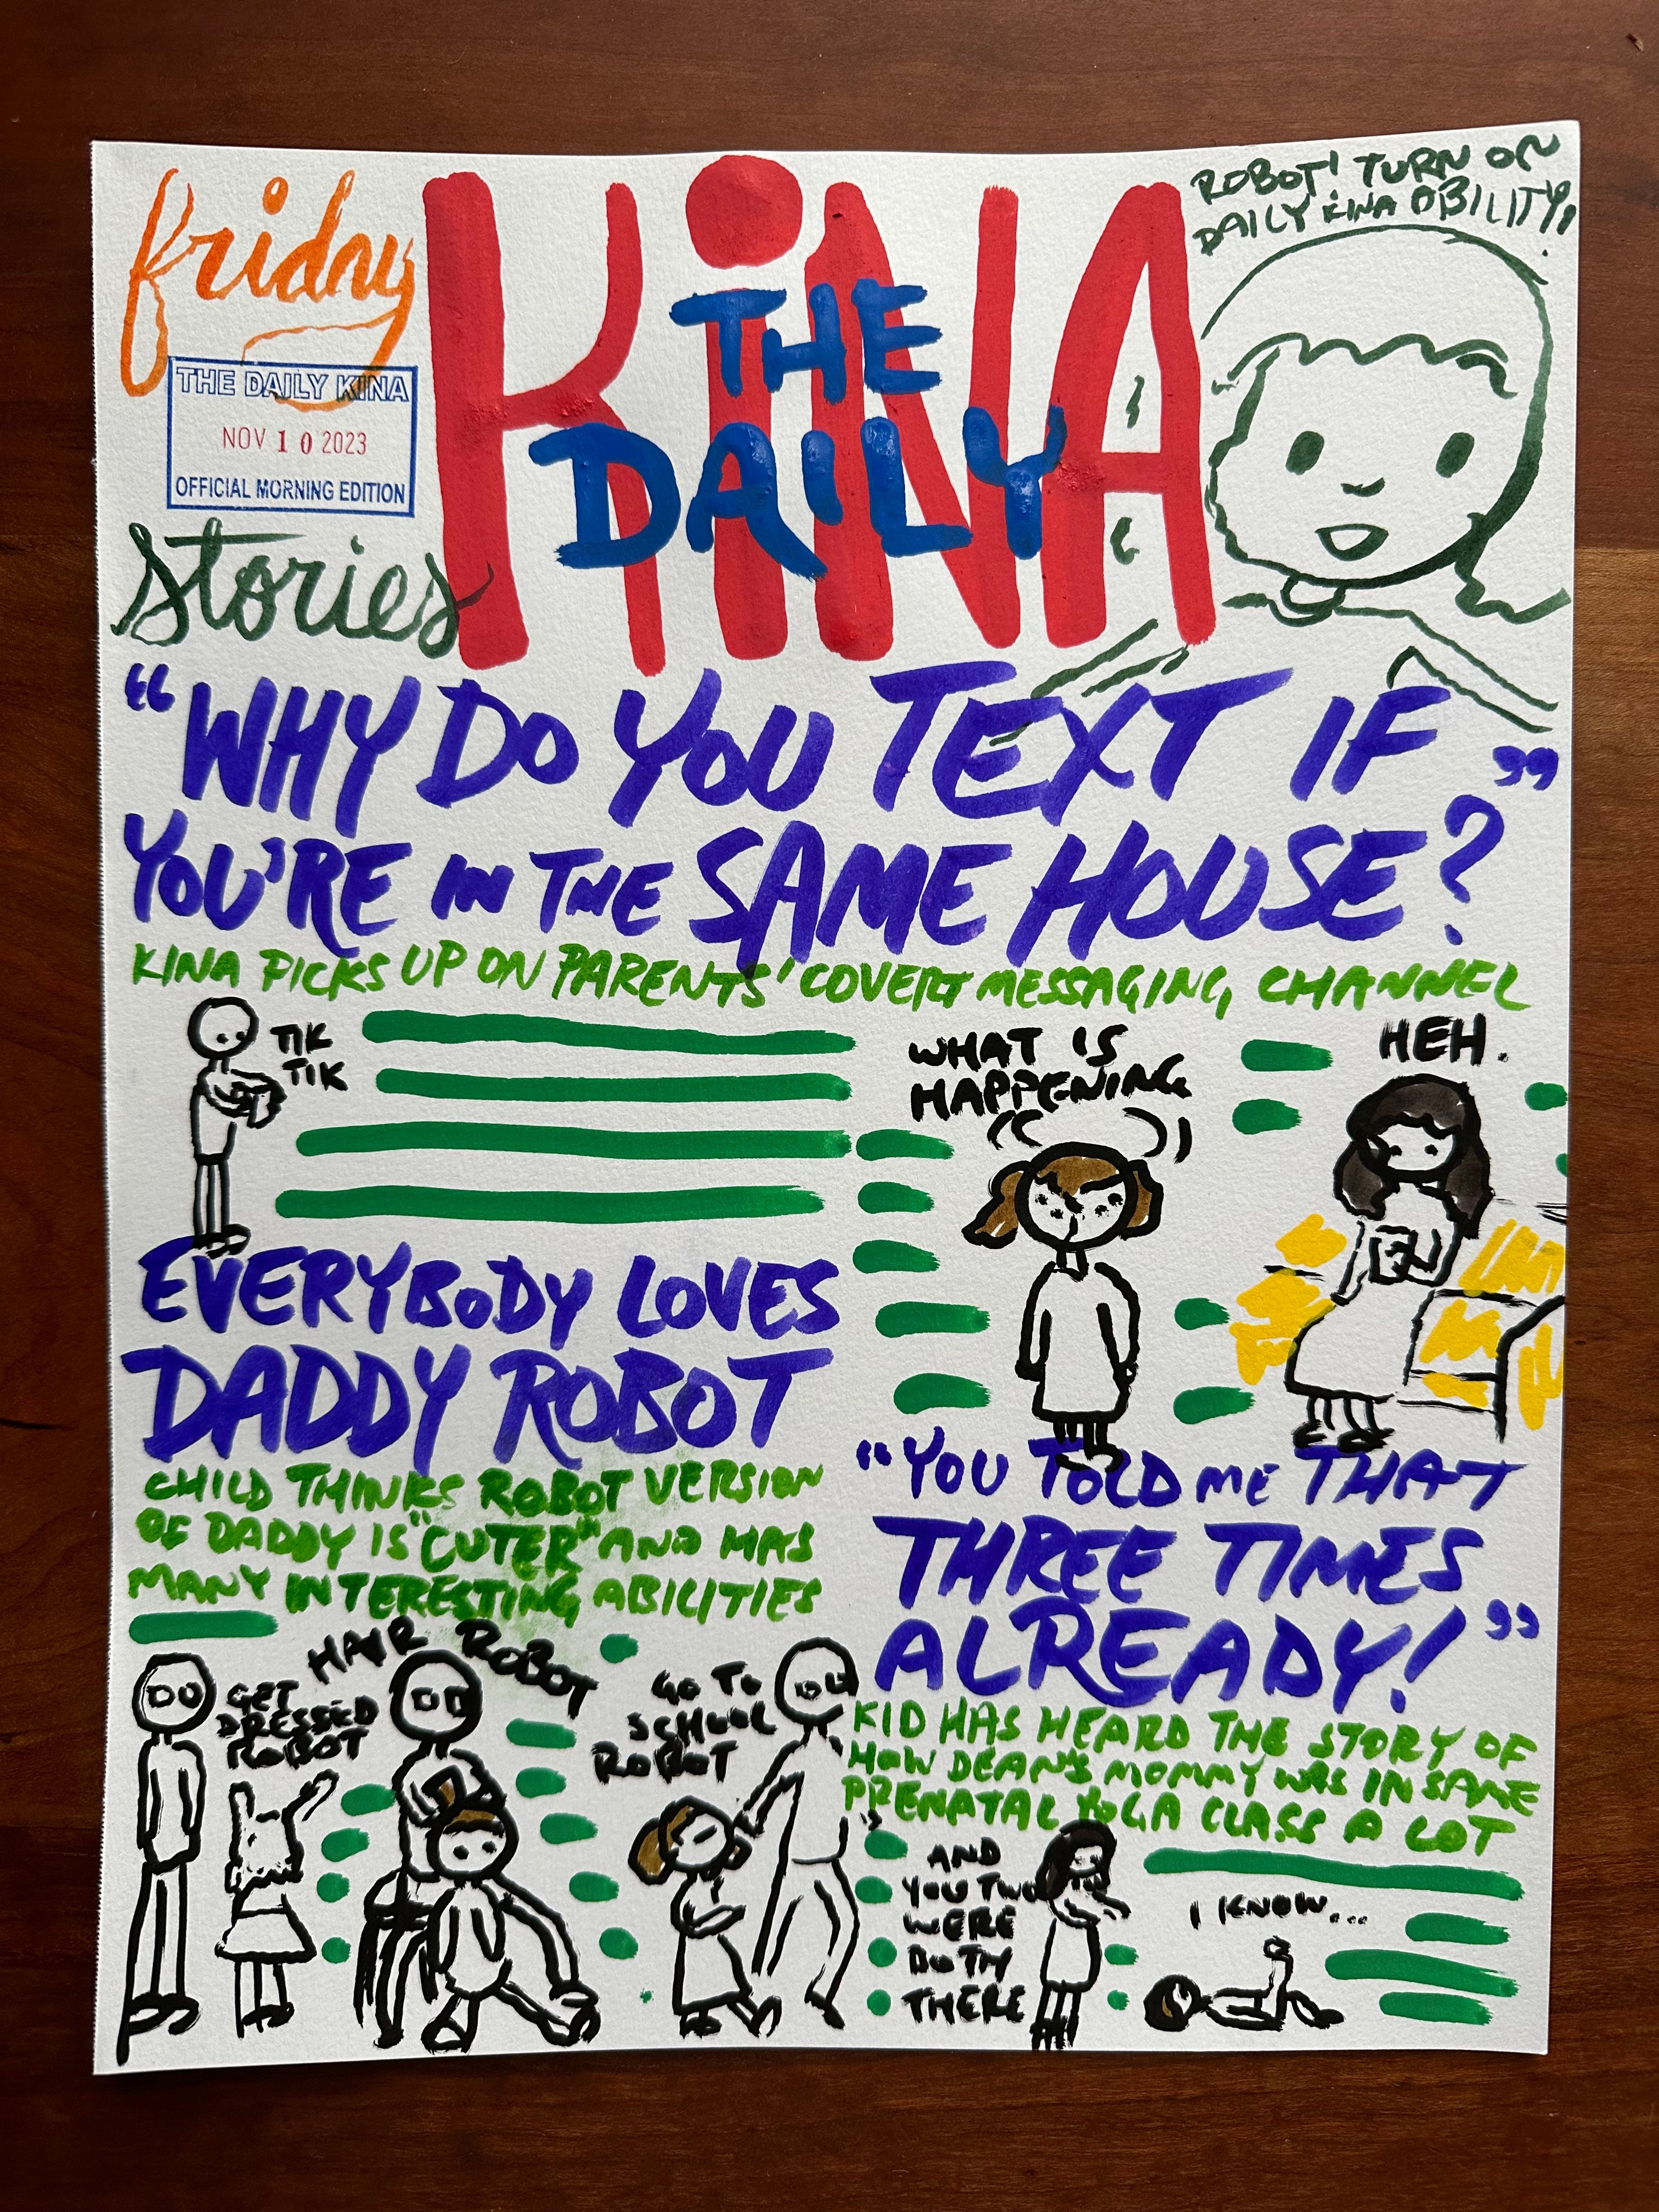 friday
THE DAILY KINA
NOV 10 2023
OFFICIAL MORNING EDITION
stories
THE
DAILY
KiNA
ROBOT! TURN ON
DAILY KINA ABILITY!
"WHY DO YOU TEXT IF
YOU'RE IN THE SAME HOUSE?"
KINA PICKS UP ON PARENTS' COVERT MESSAGING CHANNEL
TIK
TIK
WHAT IS
HAPPENING
HEH.
EVERYBODY LOVES
DADDY ROBOT
CHILD THINKS ROBOT VERSION
OF DADDY IS "CUTER" AND HAS
MANY INTERESTING ABILITIES
GET
DRESSED
ROBOT
HAIR ROBOT
GO TO
SCHOOL
ROBOT
"YOU TOLD ME THAT
THREE TIMES
ALREADY!"
KID HAS HEARD THE STORY OF
HOW DEAN'S MOMMY WAS IN SAME
PRENATAL YOGA CLASS A LOT
AND
YOU TWO
WERE
BOTH
THERE
I KNOW...